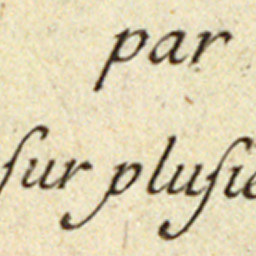 par
ſur pluſie